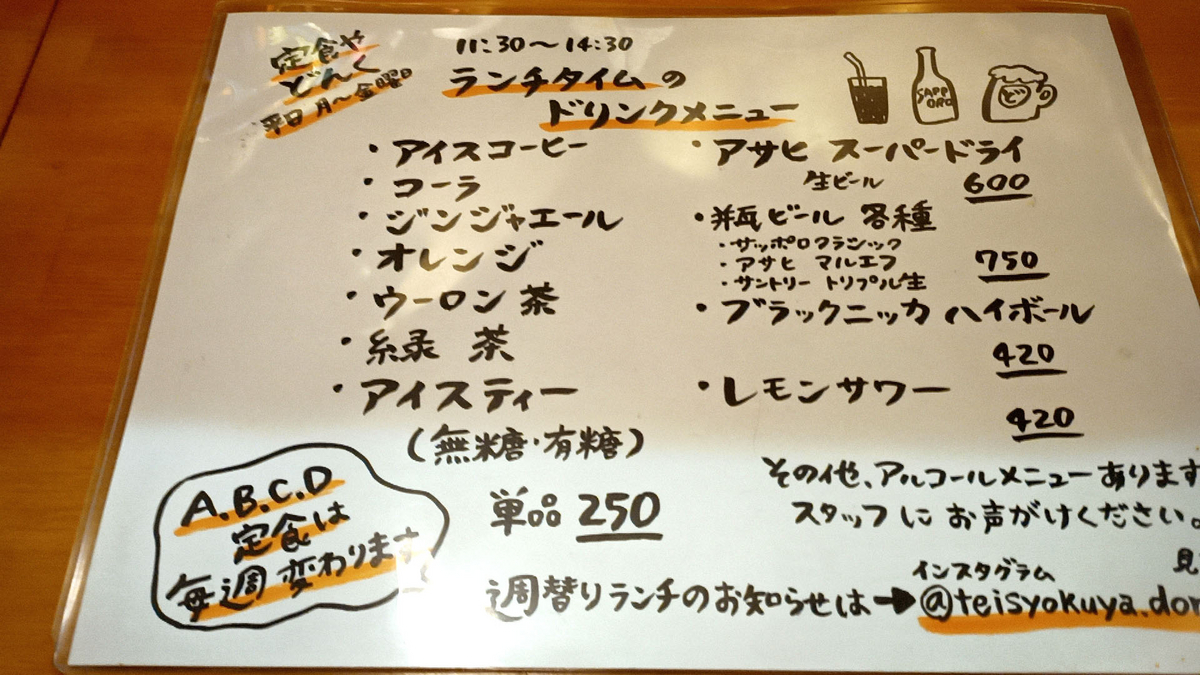 定食や
どんく
平日 月〜金曜日
11:30〜14:30
ランチタイムの
ドリンクメニュー
SAPPORO
ビ
・アイスコーヒー
・コーラ
・ジンジャエール
・オレンジ
・ウーロン茶
・緑茶
・アイスティー
(無糖・有糖)
単品 250
・アサヒ スーパードライ
生ビール 600
・瓶ビール 各種
・サッポロクラシック
・アサヒ マルエフ 750
・サントリー トリプル生
・ブラックニッカ ハイボール
420
・レモンサワー
420
その他、アルコールメニューあります
スタッフにお声がけください。
A.B.C.D
定食は
毎週変わります
見
インスタグラム
週替りランチのお知らせは→@teisyokuya.don